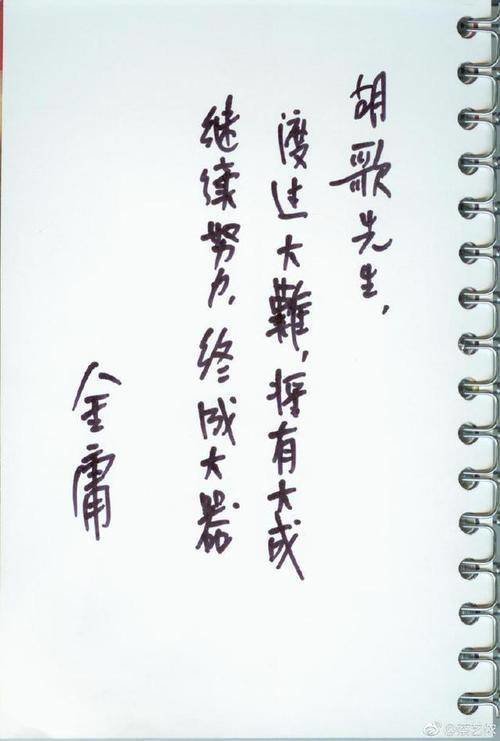 胡歌先生,
渡过大難,将有大成
继续努力,终成大器
金庸
@蔡艺侬